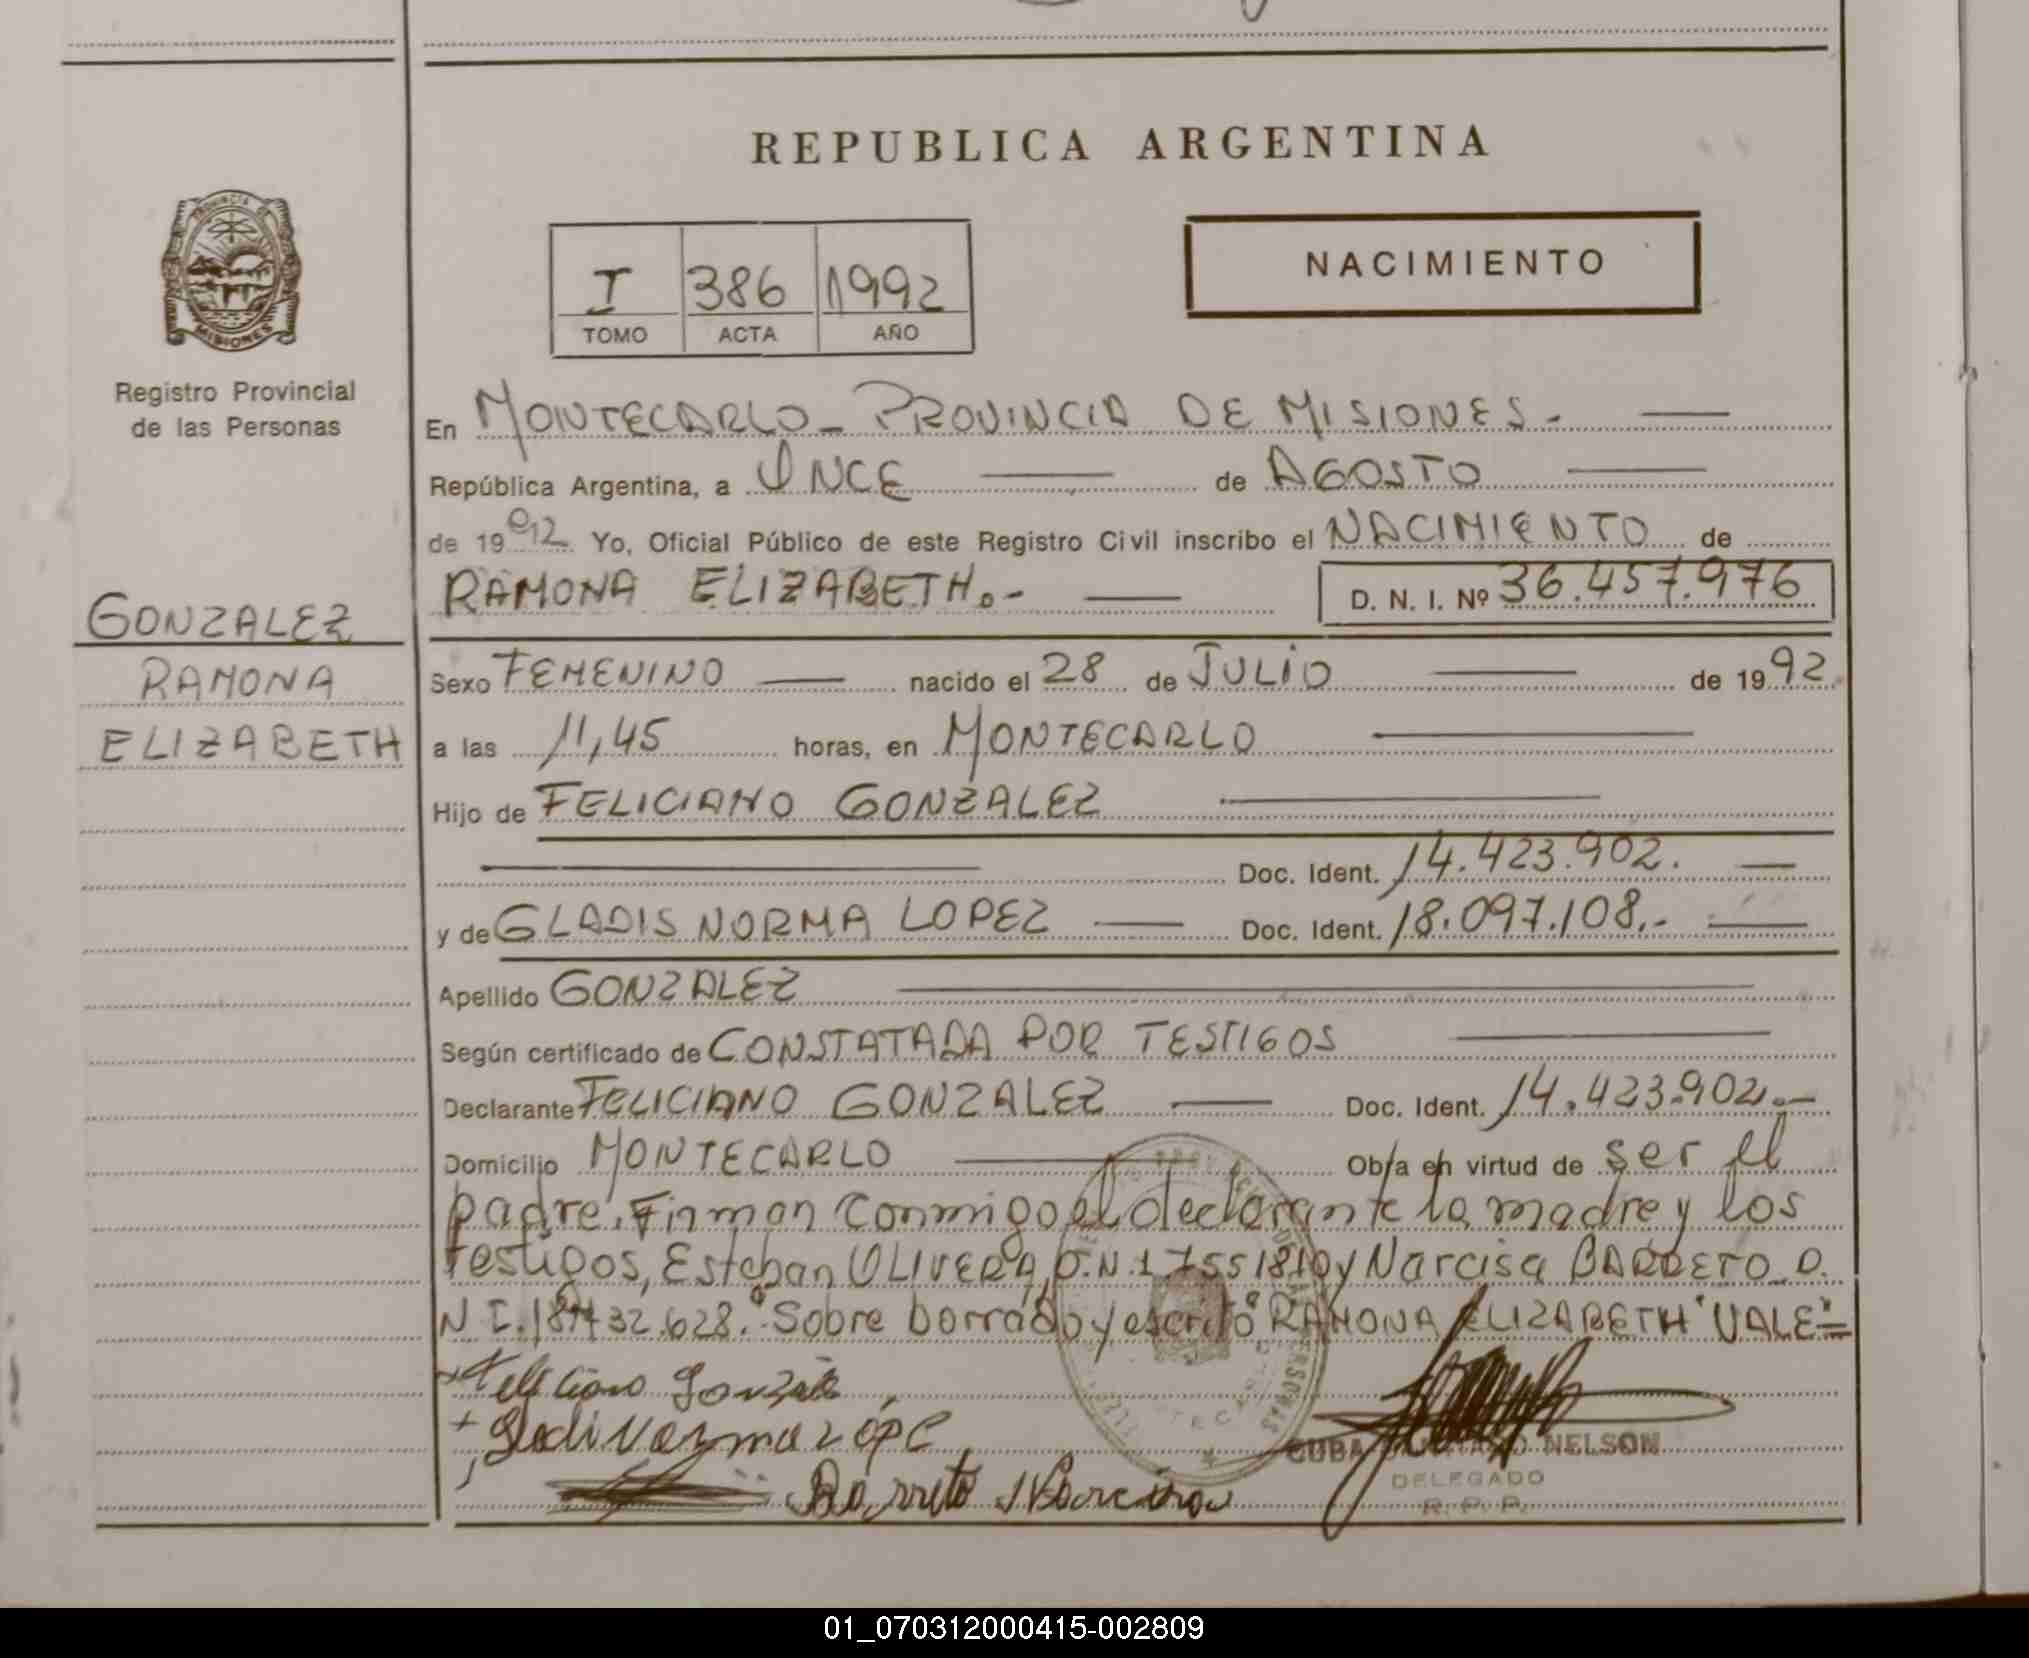 REPUBLICA ARGENTINA
PROVINCIA DE
MISIONES
Registro Provincial
de las Personas
I 386 1992
TOMO ACTA AÑO
NACIMIENTO
En MONTECARLO - PROVINCIA DE MISIONES.-
República Argentina, a ONCE de AGOSTO
de 1992 Yo, Oficial Público de este Registro Civil inscribo el NACIMIENTO de
RAMONA ELIZABETH.- D. N. I. Nº 36.457.976
GONZALEZ
RAMONA
ELIZABETH
Sexo FEMENINO nacido el 28 de JULIO de 1992
a las 11,45 horas, en MONTECARLO
Hijo de FELICIANO GONZALEZ
Doc. Ident. 14.423.902.
y de GLADIS NORMA LOPEZ Doc. Ident. 18.097.108.-
Apellido GONZALEZ
Según certificado de CONSTATADA POR TESTIGOS
Declarante FELICIANO GONZALEZ Doc. Ident. 14.423.902.-
Domicilio MONTECARLO Obra en virtud de ser el
padre. Firman conmigo el declarante la madre y los
testigos, Esteban OLIVERA, y Narcisa BARRETO D.
N I. "Sobre borrado y escrito "RAMONA ELIZABETH" VALE"=
Feliciano Gonzalez
Barreto
CUBA NELSON
DELEGADO
R. P. P.
01_070312000415-002809